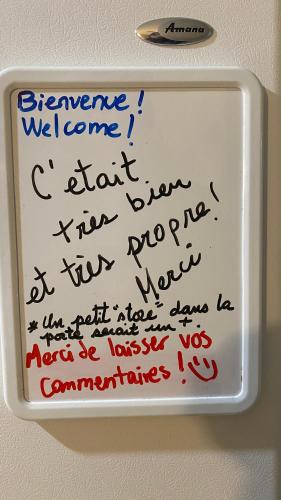 Amana
Bienvenue!
Welcome!
C'etait
très bien
et très propre!
Merci
* Un petit "store" dans la
porte serait un +.
Merci de laisser vos
Commentaires!